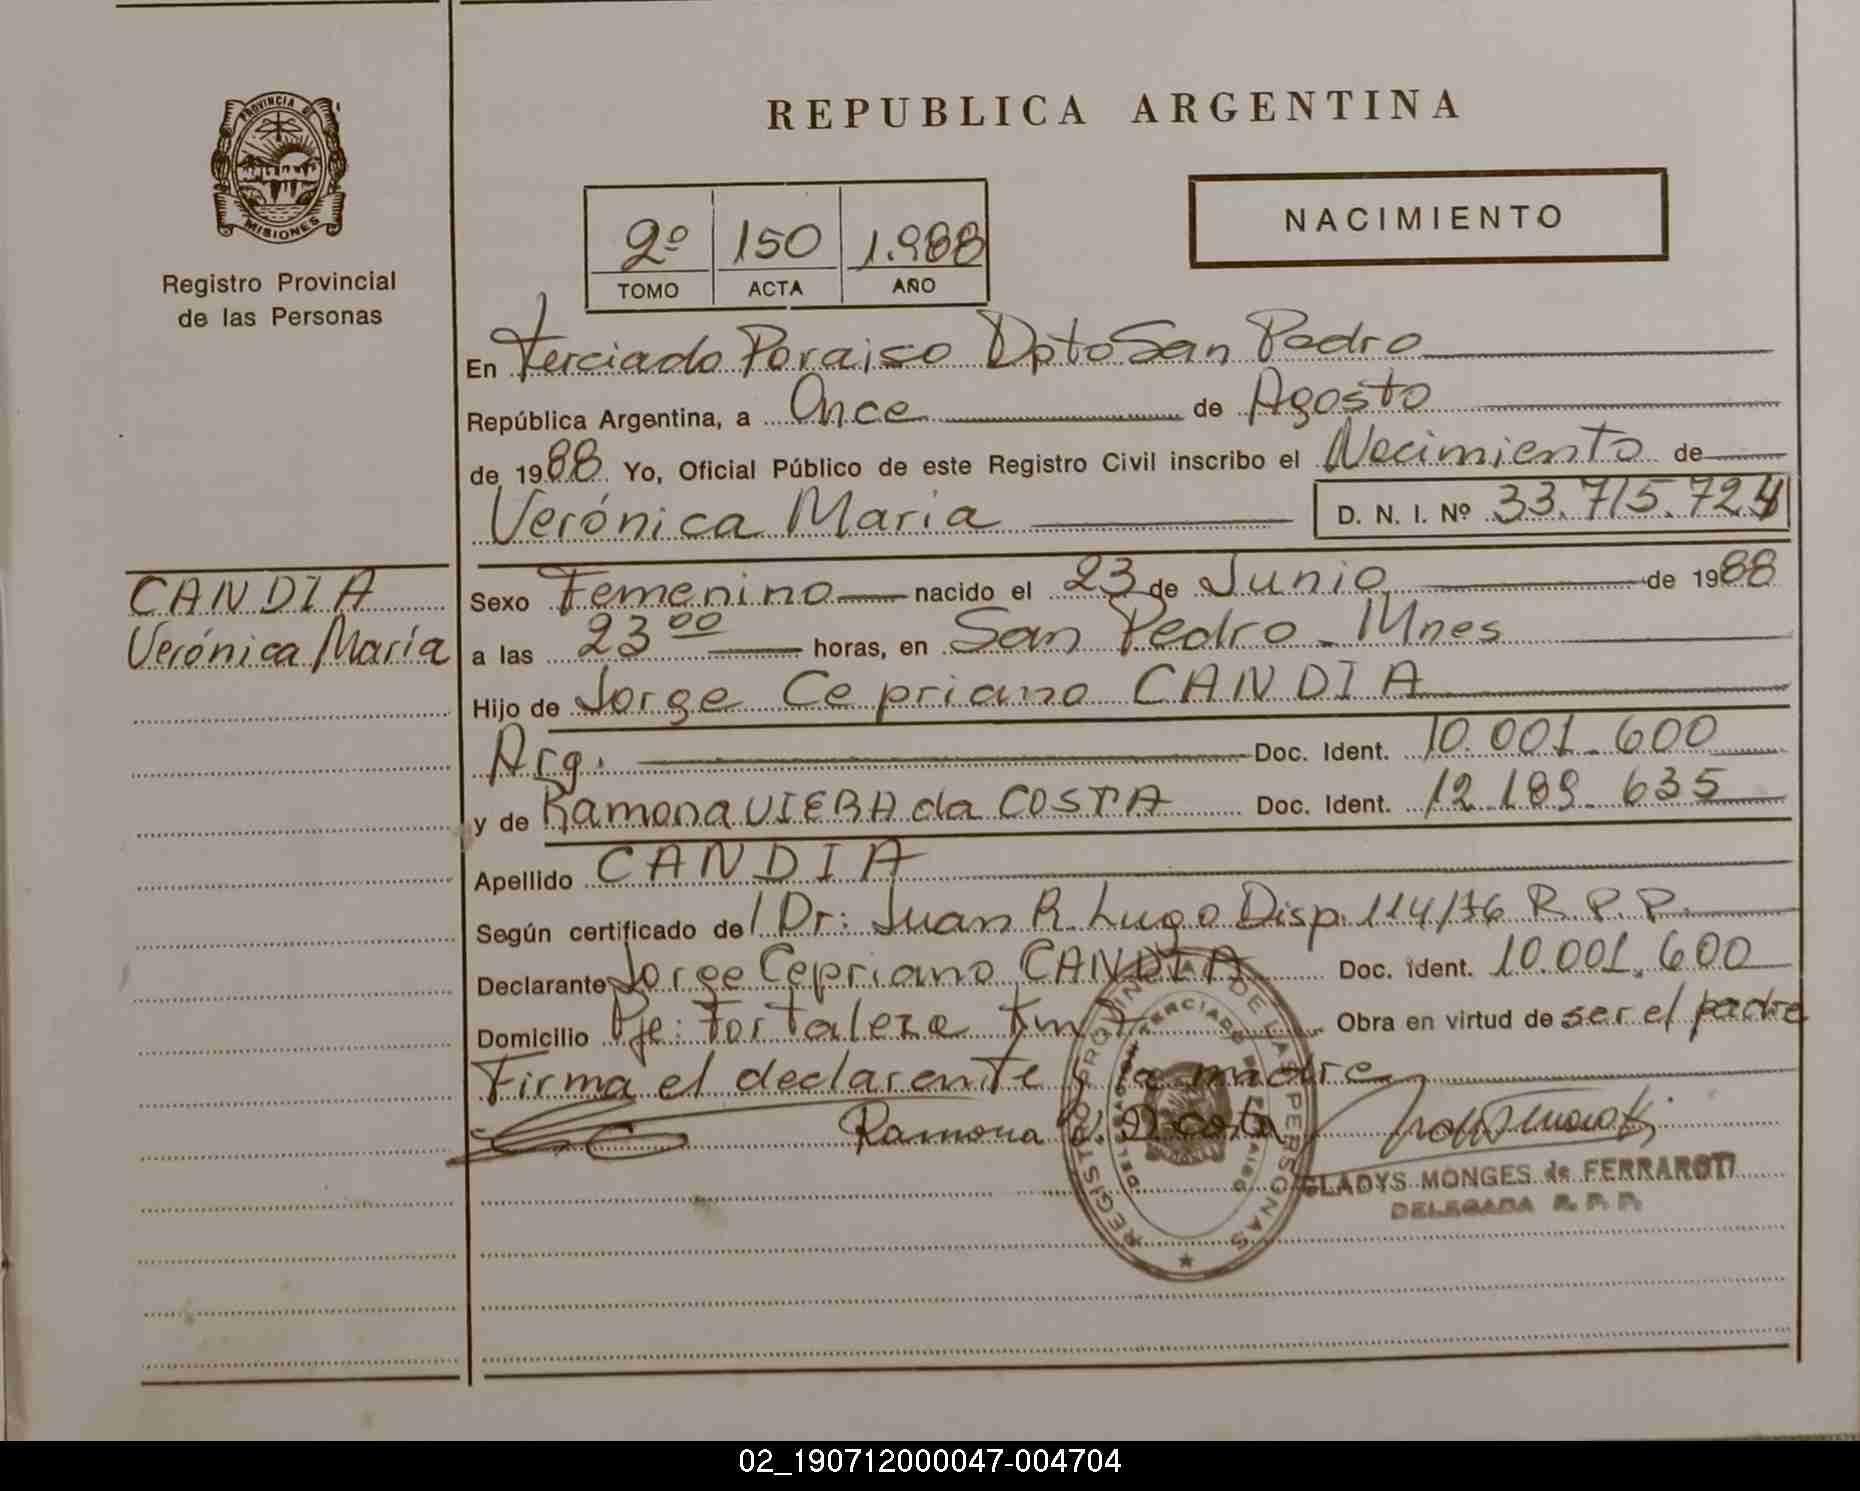 PROVINCIA DE
MISIONES
Registro Provincial
de las Personas
CANDIA
Verónica María
REPUBLICA ARGENTINA
NACIMIENTO
2º 150 1.988
TOMO ACTA AÑO
En Terciado Paraiso Dpto San Pedro
República Argentina, a Once de Agosto
de 1988 Yo, Oficial Público de este Registro Civil inscribo el Nacimiento de
Verónica María D. N. I. Nº 33.715.724
Sexo Femenino nacido el 23 de Junio de 1988
a las 23 00 horas, en San Pedro - Mnes
Hijo de Jorge Cepriano CANDIA
Arg. Doc. Ident. 10.001.600
y de Ramona VIERA da COSTA Doc. Ident. 12.189.635
Apellido CANDIA
Según certificado del Dr: Juan R. Lugo Disp. 114/76 R.P.P.
Declarante Jorge Cepriano CANDIA Doc. Ident. 10.001.600
Domicilio Pje: Fortaleza Km Obra en virtud de ser el padre
Firma el declarante y la madre
Ramona V. D costa
REGISTRO PROVINCIAL DE LAS PERSONAS
GLADYS MONGES de FERRAROTI
DELEGADA R. P. P.
02_190712000047-004704